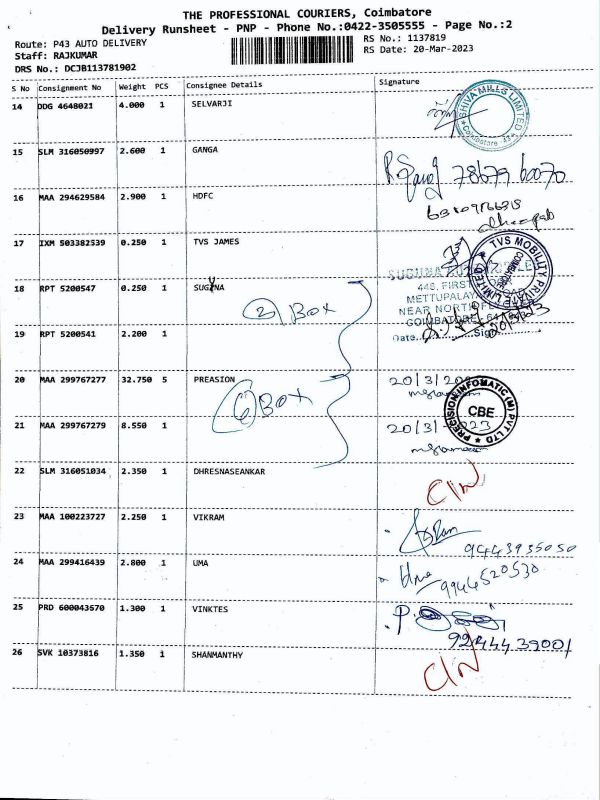 THE PROFESSIONAL COURIERS, Coimbatore
Delivery Runsheet - PNP - Phone No.:0422-3505555 - Page No.:2
Route: P43 AUTO DELIVERY
RS No.: 1137819
Staff: RAJKUMAR
RS Date: 20-Mar-2023
DRS No.: DCJB113781902
S No Consignment No Weight PCS Consignee Details Signature
14 DDG 4648021 4.000 1 SELVARJI
SHIVA MILLS LIMITED
Coimbatore
15 SLM 316050997 2.600 1 GANGA
78679 60070
16 MAA 294629584 2.900 1 HDFC
17 IXM 503382539 0.250 1 TVS JAMES
TVS MOBILITY PRIVATE LIMITED
18 RPT 5200547 0.250 1 SUGUNA
446, FIRST
METTUPALAY
NEAR NORTH
COIMBATORE
Date Sign
2 Box
19 RPT 5200541 2.200 1
20 MAA 299767277 32.750 5 PREASION
20/3/20
6 Box
PRECISION INFOMATIC (M) PVT LTD
CBE
21 MAA 299767279 8.550 1
20/3/2023
22 SLM 316051034 2.350 1 DHRESNASEANKAR
23 MAA 100223727 2.250 1 VIKRAM
9443935050
24 MAA 299416439 2.800 1 UMA
Uma 9944520530
25 PRD 600043570 1.300 1 VINKTES
26 SVK 10373816 1.350 1 SHANMANTHY